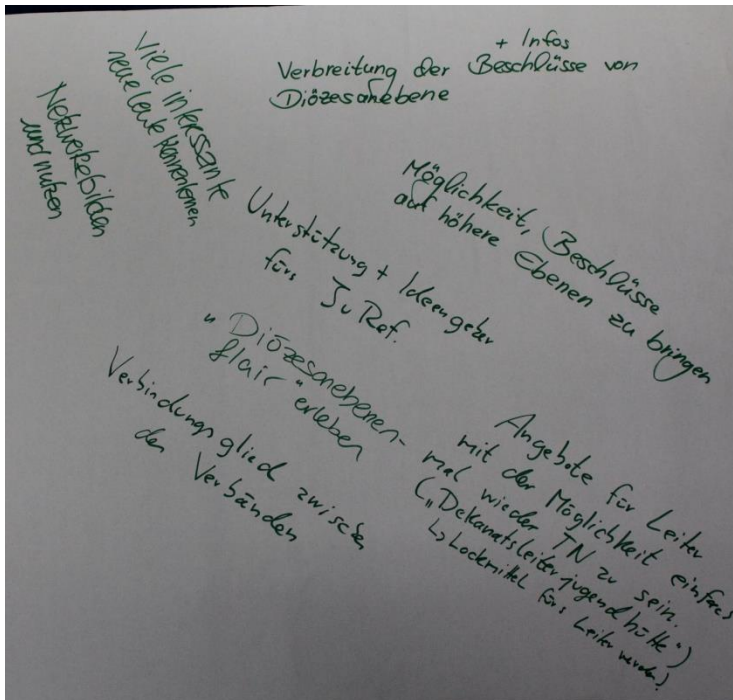 + Infos
Verbreitung der Beschlüsse von
Diözesanebene
Viele interssante
neue Leute kennenlernen
Netzwerke bilden
und nutzen
Möglichkeit, Beschlüsse
auf höhere Ebenen zu bringen
Unterstützung + Ideengeber
fürs JuRef.
"Diözesanebenen-
flair" erleben
Verbindungsglied zwischen
den Verbänden
Angebote für Leiter
mit der Möglichkeit einfach
mal wieder TN zu sein.
("Dekanatsleiterjugendhütte")
↳ Lockmittel fürs Leiter werden)